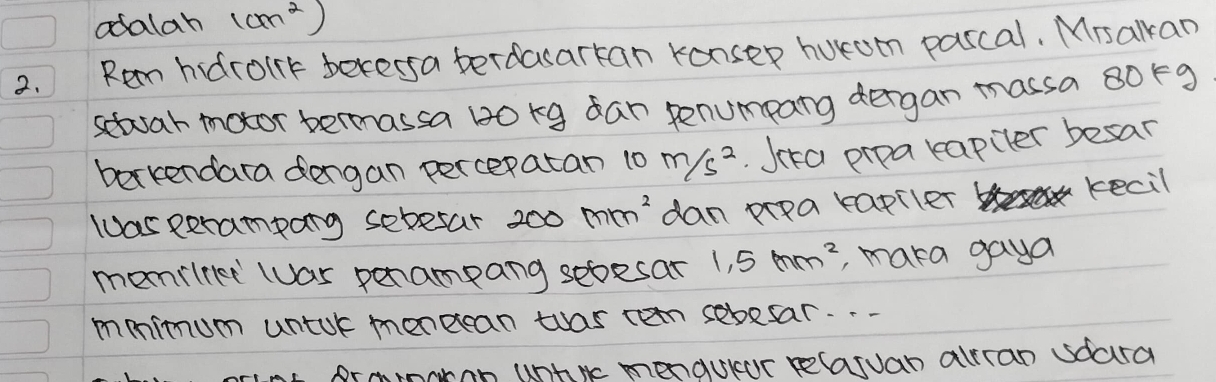 adalah (cm²)
2. Rem hidrolik bekerja berdasarkan konsep hukum pascal. Misalkan
sebuah motor bermassa 120 kg dan penumpang dengan massa 80 kg
berkendara dengan percepatan 10 m/s². Jika pipa kapiler besar
luas penampang sebesar 200 mm² dan pipa kapiler kecil
memiliki luas penampang sebesar 1,5 mm², maka gaya
minimum untuk menekan tuas rem sebesar...
digunakan untuk mengukur kelajuan aliran udara